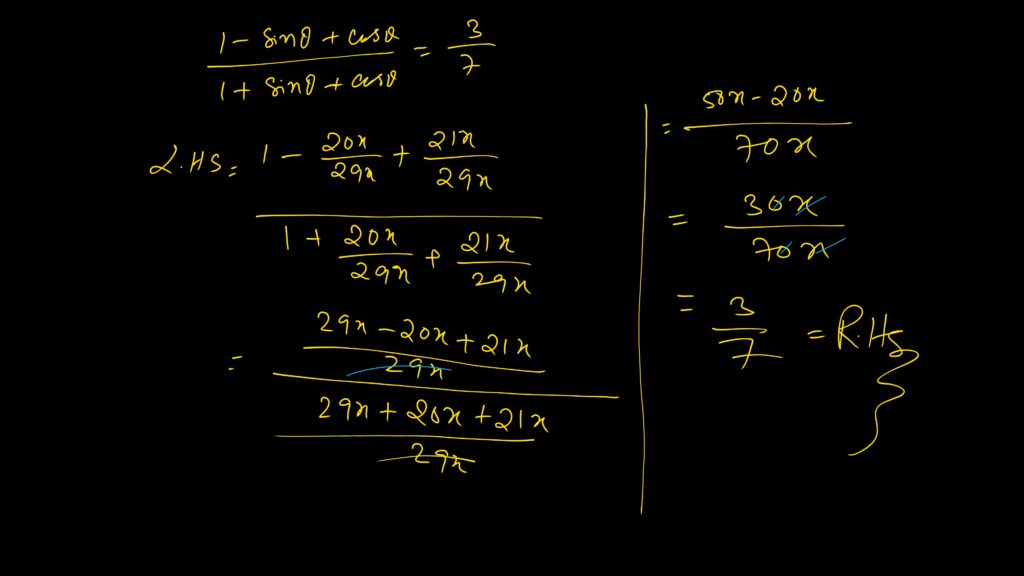 1 - sinθ + cosθ / 1 + sinθ + cosθ = 3/7
L.HS = 1 - 20x/29x + 21x/29x
1 + 20x/29x + 21x/29x
= 29x - 20x + 21x / 29x
29x + 20x + 21x / 29x
= 50x - 20x / 70x
= 30x / 70x
= 3/7 = R.HS